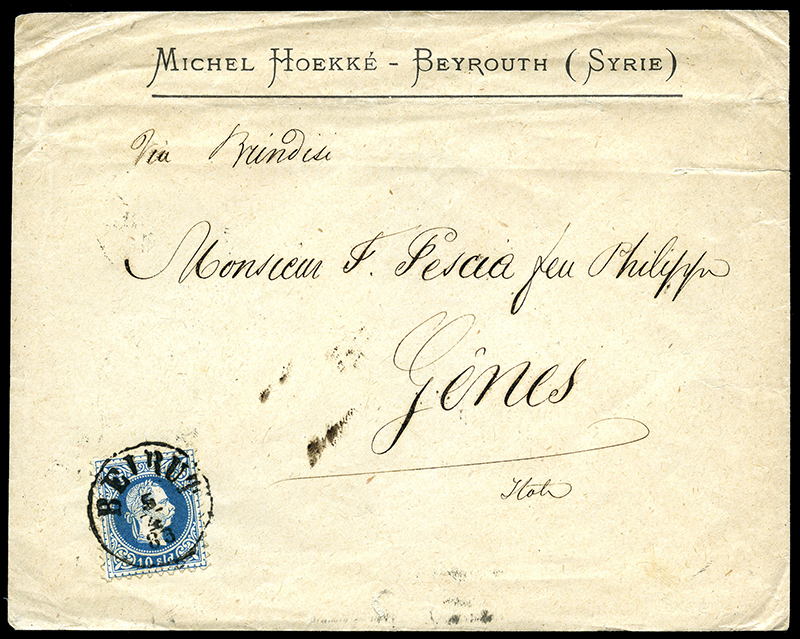 MICHEL HOEKKÉ - BEYROUTH (SYRIE)
Via Brindisi
Monsieur F. Pescia feu Philippe
Gênes
Italie
BEIRUT
5
4
83
10 sld